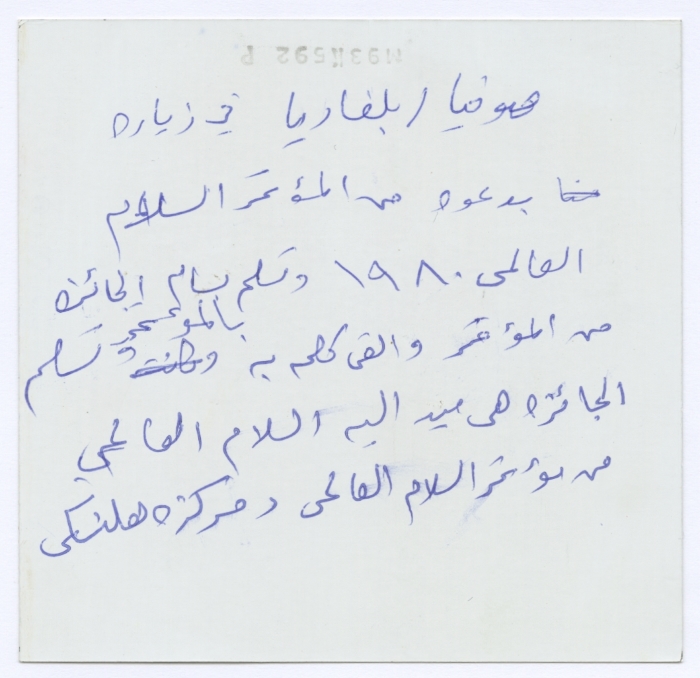 M93N592 P
صوفيا / بلغاريا في زياره
بدعوه من المؤتمر السلام
العالمى ١٩٨٠ وتسلم بسام الجائزه
من المؤتمر والقى كلمه به وكانت بالمؤتمر وتسلم
الجائزه هى ميداليه السلام العالمي
من مؤتمر السلام العالمى ومركزه هلسنكى